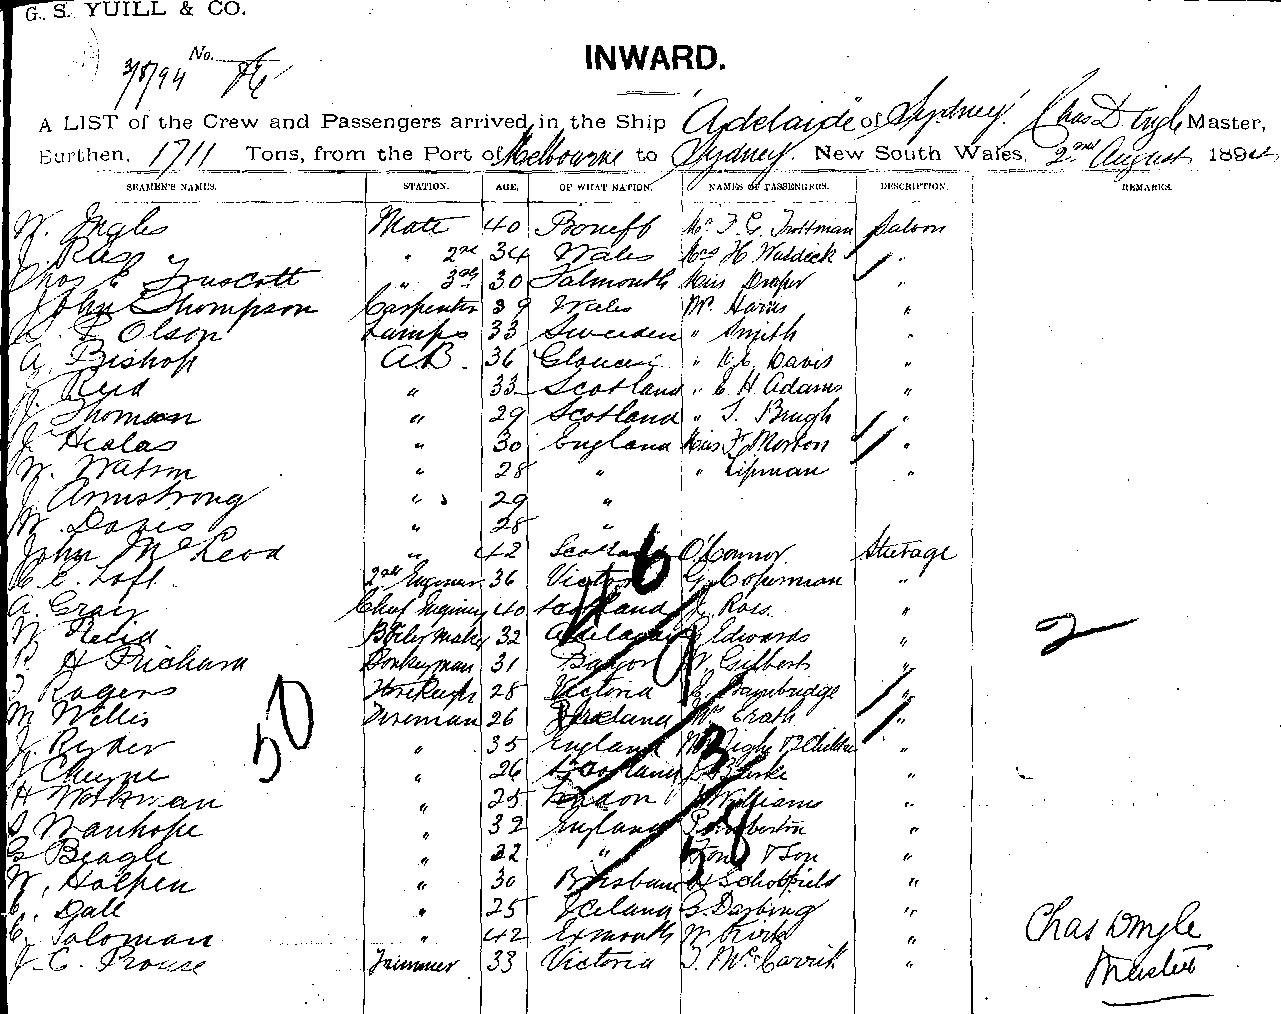 G. S. YUILL & CO.
No.
3/8/94
INWARD.
A LIST of the Crew and Passengers arrived in the Ship "Adelaide" of Sydney. Chas Dingle Master,
Burthen, 1711 Tons, from the Port of Melbourne to Sydney. New South Wales, 2nd August 1894
SEAMEN'S NAMES. STATION. AGE. OF WHAT NATION. NAMES OF PASSENGERS. DESCRIPTION. REMARKS.
W. Ingles Mate 40 Mr F. G. Trottman Saloon
J. Rass " 2nd 34 Wales Mrs H Waldick "
Thos E Truscott " 3rd 30 Falmouth Miss Draper "
John Thompson Carpenter 39 Wales Mr Harris "
P Olson Lamps 33 Sweeden " Smith "
A. Bishop A.B. 36 " Davis "
Reid " 33 Scotland " E H Adams "
Thomson " 29 Scotland " T. Brugh "
J. Healas " 30 England Miss F. Morton "
W. Watson " 28 " " Lipman "
J. Armstrong " 29 "
W. Davis " 28 "
John McLeod " 42 Scotland O'Connor Steerage
C. E. Loft 2nd Engineer 36 Victoria G. Coperman "
A. Gray Chief Engineer 40 Scotland Ross "
W Reid Boilermaker 32 Adelaide Edwards "
H Prichard Donkeyman 31 Bangor W. Gilberts "
Rogers Storekeeper 28 Victoria Bambridge "
M Wellis Fireman 26 Mrs Erath "
J. Ryder " 35 England "
J Cheyne " 26 Scotland "
H Workman " 25 London Williams "
S Manhope " 32 England Pemberton "
G Beagle " 22 " & Son "
W. Halpen " 30 Brisbane H Schofield "
C. Dall " 25 Iceland G. Darbing "
C. Soloman " 42 Exmouth W. Kirk "
J. C. Prouse Trimmer 33 Victoria T. McCarrik "
46
9
3
58
50
2
Chas Dingle
Master